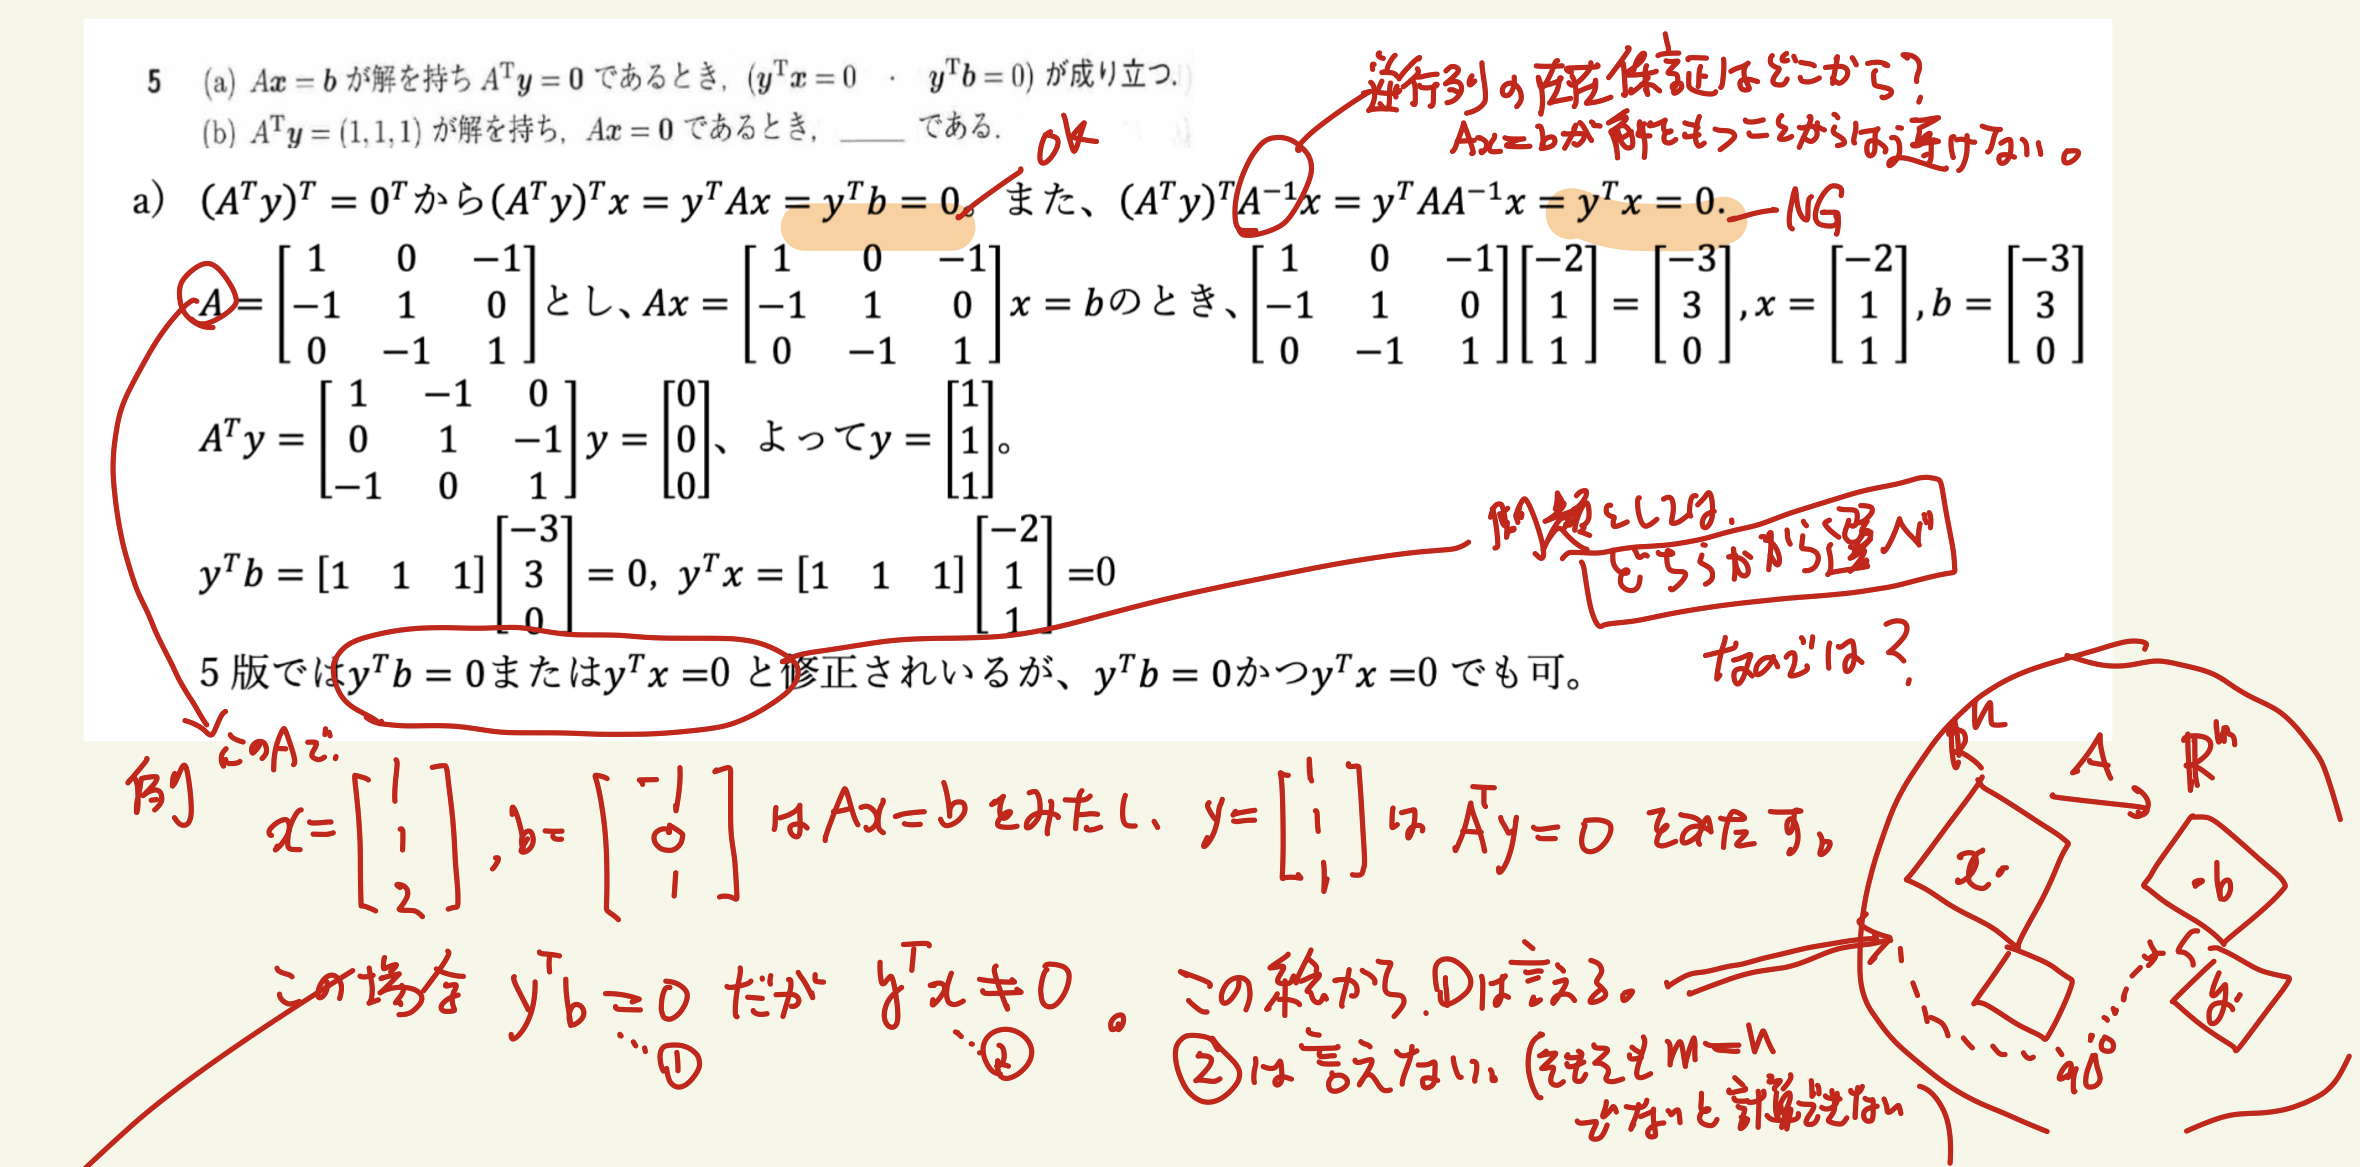 5 (a) Ax = b が解を持ち Aᵀy = 0 であるとき, (yᵀx = 0 · yᵀb = 0) が成り立つ.
(b) Aᵀy = (1, 1, 1) が解を持ち, Ax = 0 であるとき, ____ である.
逆行列の存在保証はどこから?
Ax=bが解をもつことからは導けない。
OK
a) (Aᵀy)ᵀ = 0ᵀから(Aᵀy)ᵀx = yᵀAx = yᵀb = 0。また、(Aᵀy)ᵀA⁻¹x = yᵀAA⁻¹x = yᵀx = 0.
NG
A = [1 0 −1; −1 1 0; 0 −1 1] とし、Ax = [1 0 −1; −1 1 0; 0 −1 1] x = bのとき、[1 0 −1; −1 1 0; 0 −1 1] [−2; 1; 1] = [−3; 3; 0], x = [−2; 1; 1], b = [−3; 3; 0]
Aᵀy = [1 −1 0; 0 1 −1; −1 0 1] y = [0; 0; 0]、よってy = [1; 1; 1]。
yᵀb = [1 1 1] [−3; 3; 0] = 0, yᵀx = [1 1 1] [−2; 1; 1] =0
問題としては、
どちらかから選べ
なのでは?
5 版ではyᵀb = 0またはyᵀx =0 と修正されいるが、yᵀb = 0かつyᵀx =0 でも可。
例 このAで.
x= [1; 1; 2], b= [-1; 0; 1] は Ax=b をみたし、y= [1; 1; 1] は Aᵀy=0 をみたす。
この場合 yᵀb=0 だが yᵀx≠0。
…① …②
この絵から、①は言える。
②は言えない、(そもそも m=n
でないと計算できない
Rⁿ A Rᵐ
x b
y
90°